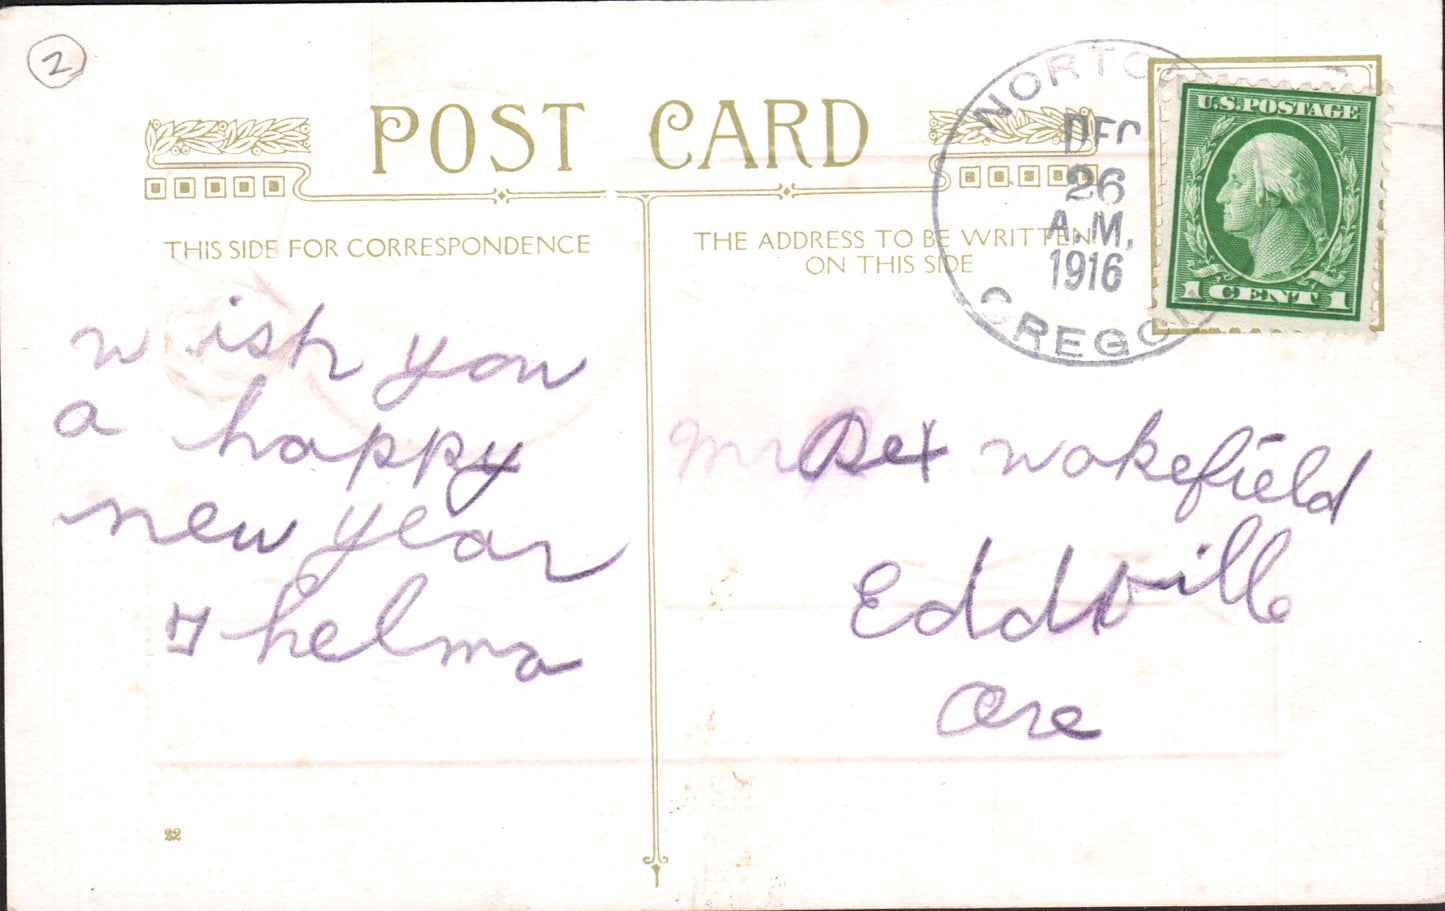 2
POST CARD
THIS SIDE FOR CORRESPONDENCE
THE ADDRESS TO BE WRITTEN
ON THIS SIDE
NORTO
DEC
26
A.M.
1916
OREGON
U.S. POSTAGE
1 CENT 1
wish you
a happy
new year
Thelma
Mr Dex Wakefield
Eddville
Ore
22